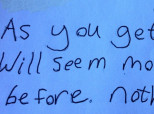 As you get
Will seem mo
before. noth